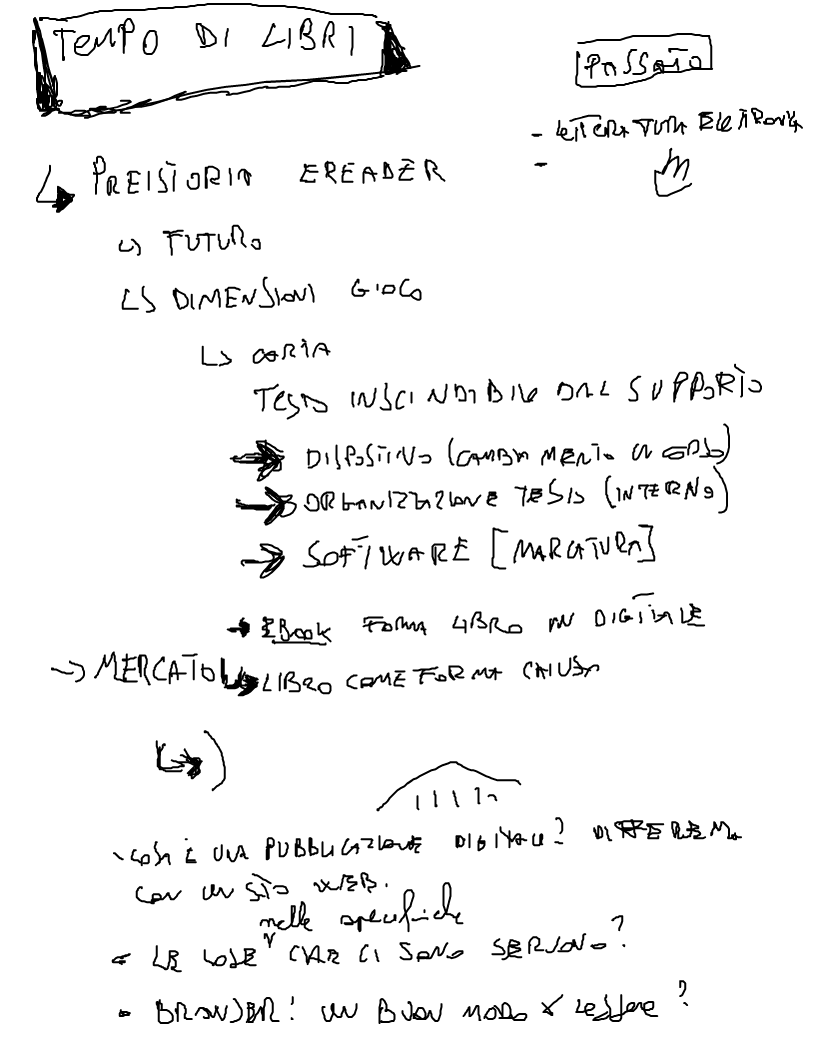 TEMPO DI LIBRI
PASSATO
- LETTERATURA ELETTRONICA
-
↳ PREISTORIA EREADER
↳ FUTURO
↳ DIMENSIONI GIOCO
↳ CARTA
TESTO INSCINDIBILE DAL SUPPORTO
→ DISPOSITIVO (CAMBIAMENTO IN CORSO)
→ ORGANIZZAZIONE TESTO (INTERNO)
→ SOFTWARE [MARCATURA]
→ EBOOK FORMA LIBRO IN DIGITALE
→ MERCATO
↳ LIBRO COME FORMA CHIUSA
↳)
- COSA È UNA PUBBLICAZIONE DIGITALE? DIFFERENZA
CON UN SITO WEB.
nelle specifiche
- LE COSE CHE CI SONO SERVONO?
- BROWSER: UN BUON MODO X LEGGERE?